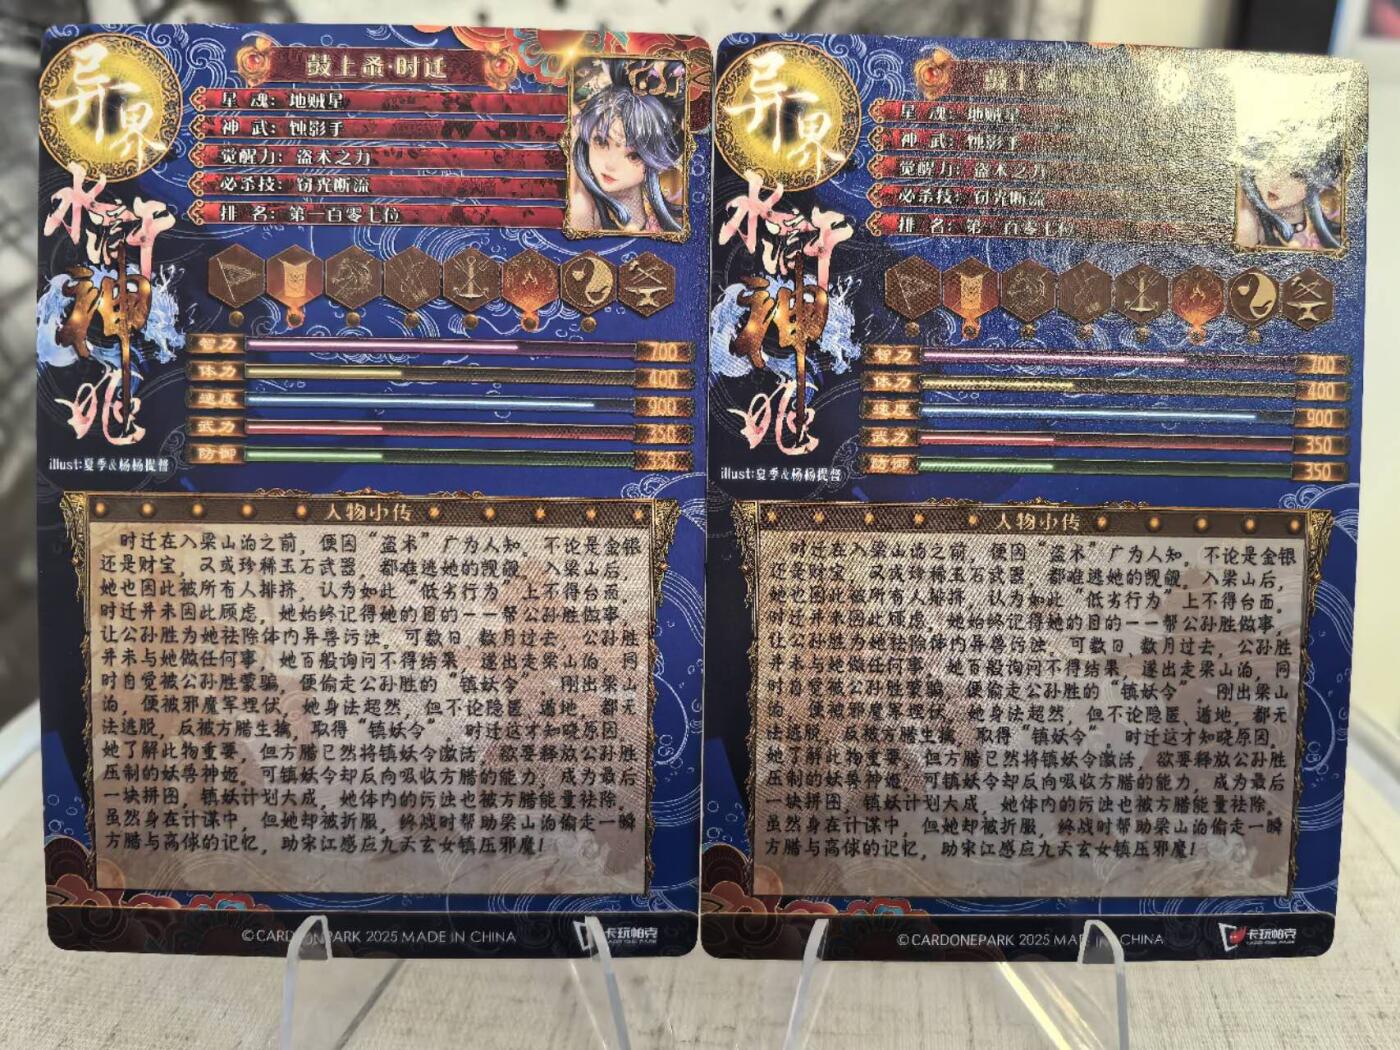 异界
水浒
神
兆
illust:夏季&杨杨提督
鼓上蚤·时迁
星 魂：地贼星
神 武：蚀影手
觉醒力：盗术之力
必杀技：窃光断流
排 名：第一百零七位
智力 700
体力 400
速度 900
武力 350
防御 350
人物小传
时迁在入梁山泊之前，便因“盗术”广为人知。不论是金银
还是财宝，又或珍稀玉石武器，都难逃她的觊觎。入梁山后，
她也因此被所有人排挤，认为如此“低劣行为”上不得台面。
时迁并未因此顾虑，她始终记得她的目的——帮公孙胜做事，
让公孙胜为她祛除体内异兽污浊。可数日、数月过去，公孙胜
并未与她做任何事，她百般询问不得结果，遂出走梁山泊，同
时自觉被公孙胜蒙骗，便偷走公孙胜的“镇妖令”。刚出梁山
泊，便被邪魔军埋伏，她身法超然，但不论隐匿、遁地，都无
法逃脱，反被方腊生擒，取得“镇妖令”。时迁这才知晓原因。
她了解此物重要，但方腊已然将镇妖令激活，欲要释放公孙胜
压制的妖兽神姬，可镇妖令却反向吸收方腊的能力，成为最后
一块拼图，镇妖计划大成，她体内的污浊也被方腊能量祛除。
虽然身在计谋中，但她却被折服，终战时帮助梁山泊偷走一瞬
方腊与高俅的记忆，助宋江感应九天玄女镇压邪魔！
©CARDONEPARK 2025 MADE IN CHINA
卡玩帕克
异界
水浒
神
兆
illust:夏季&杨杨提督
星 魂：地贼星
神 武：蚀影手
觉醒力：盗术之力
必杀技：窃光断流
排 名：第一百零七位
智力 700
体力 400
速度 900
武力 350
防御 350
人物小传
时迁在入梁山泊之前，便因“盗术”广为人知。不论是金银
还是财宝，又或珍稀玉石武器，都难逃她的觊觎。入梁山后，
她也因此被所有人排挤，认为如此“低劣行为”上不得台面。
时迁并未因此顾虑，她始终记得她的目的——帮公孙胜做事，
让公孙胜为她祛除体内异兽污浊。可数日、数月过去，公孙胜
并未与她做任何事，她百般询问不得结果，遂出走梁山泊，同
时自觉被公孙胜蒙骗，便偷走公孙胜的“镇妖令”。刚出梁山
泊，便被邪魔军埋伏，她身法超然，但不论隐匿、遁地，都无
法逃脱，反被方腊生擒，取得“镇妖令”。时迁这才知晓原因。
她了解此物重要，但方腊已然将镇妖令激活，欲要释放公孙胜
压制的妖兽神姬，可镇妖令却反向吸收方腊的能力，成为最后
一块拼图，镇妖计划大成，她体内的污浊也被方腊能量祛除。
虽然身在计谋中，但她却被折服，终战时帮助梁山泊偷走一瞬
方腊与高俅的记忆，助宋江感应九天玄女镇压邪魔！
©CARDONEPARK 2025 MADE IN CHINA
卡玩帕克